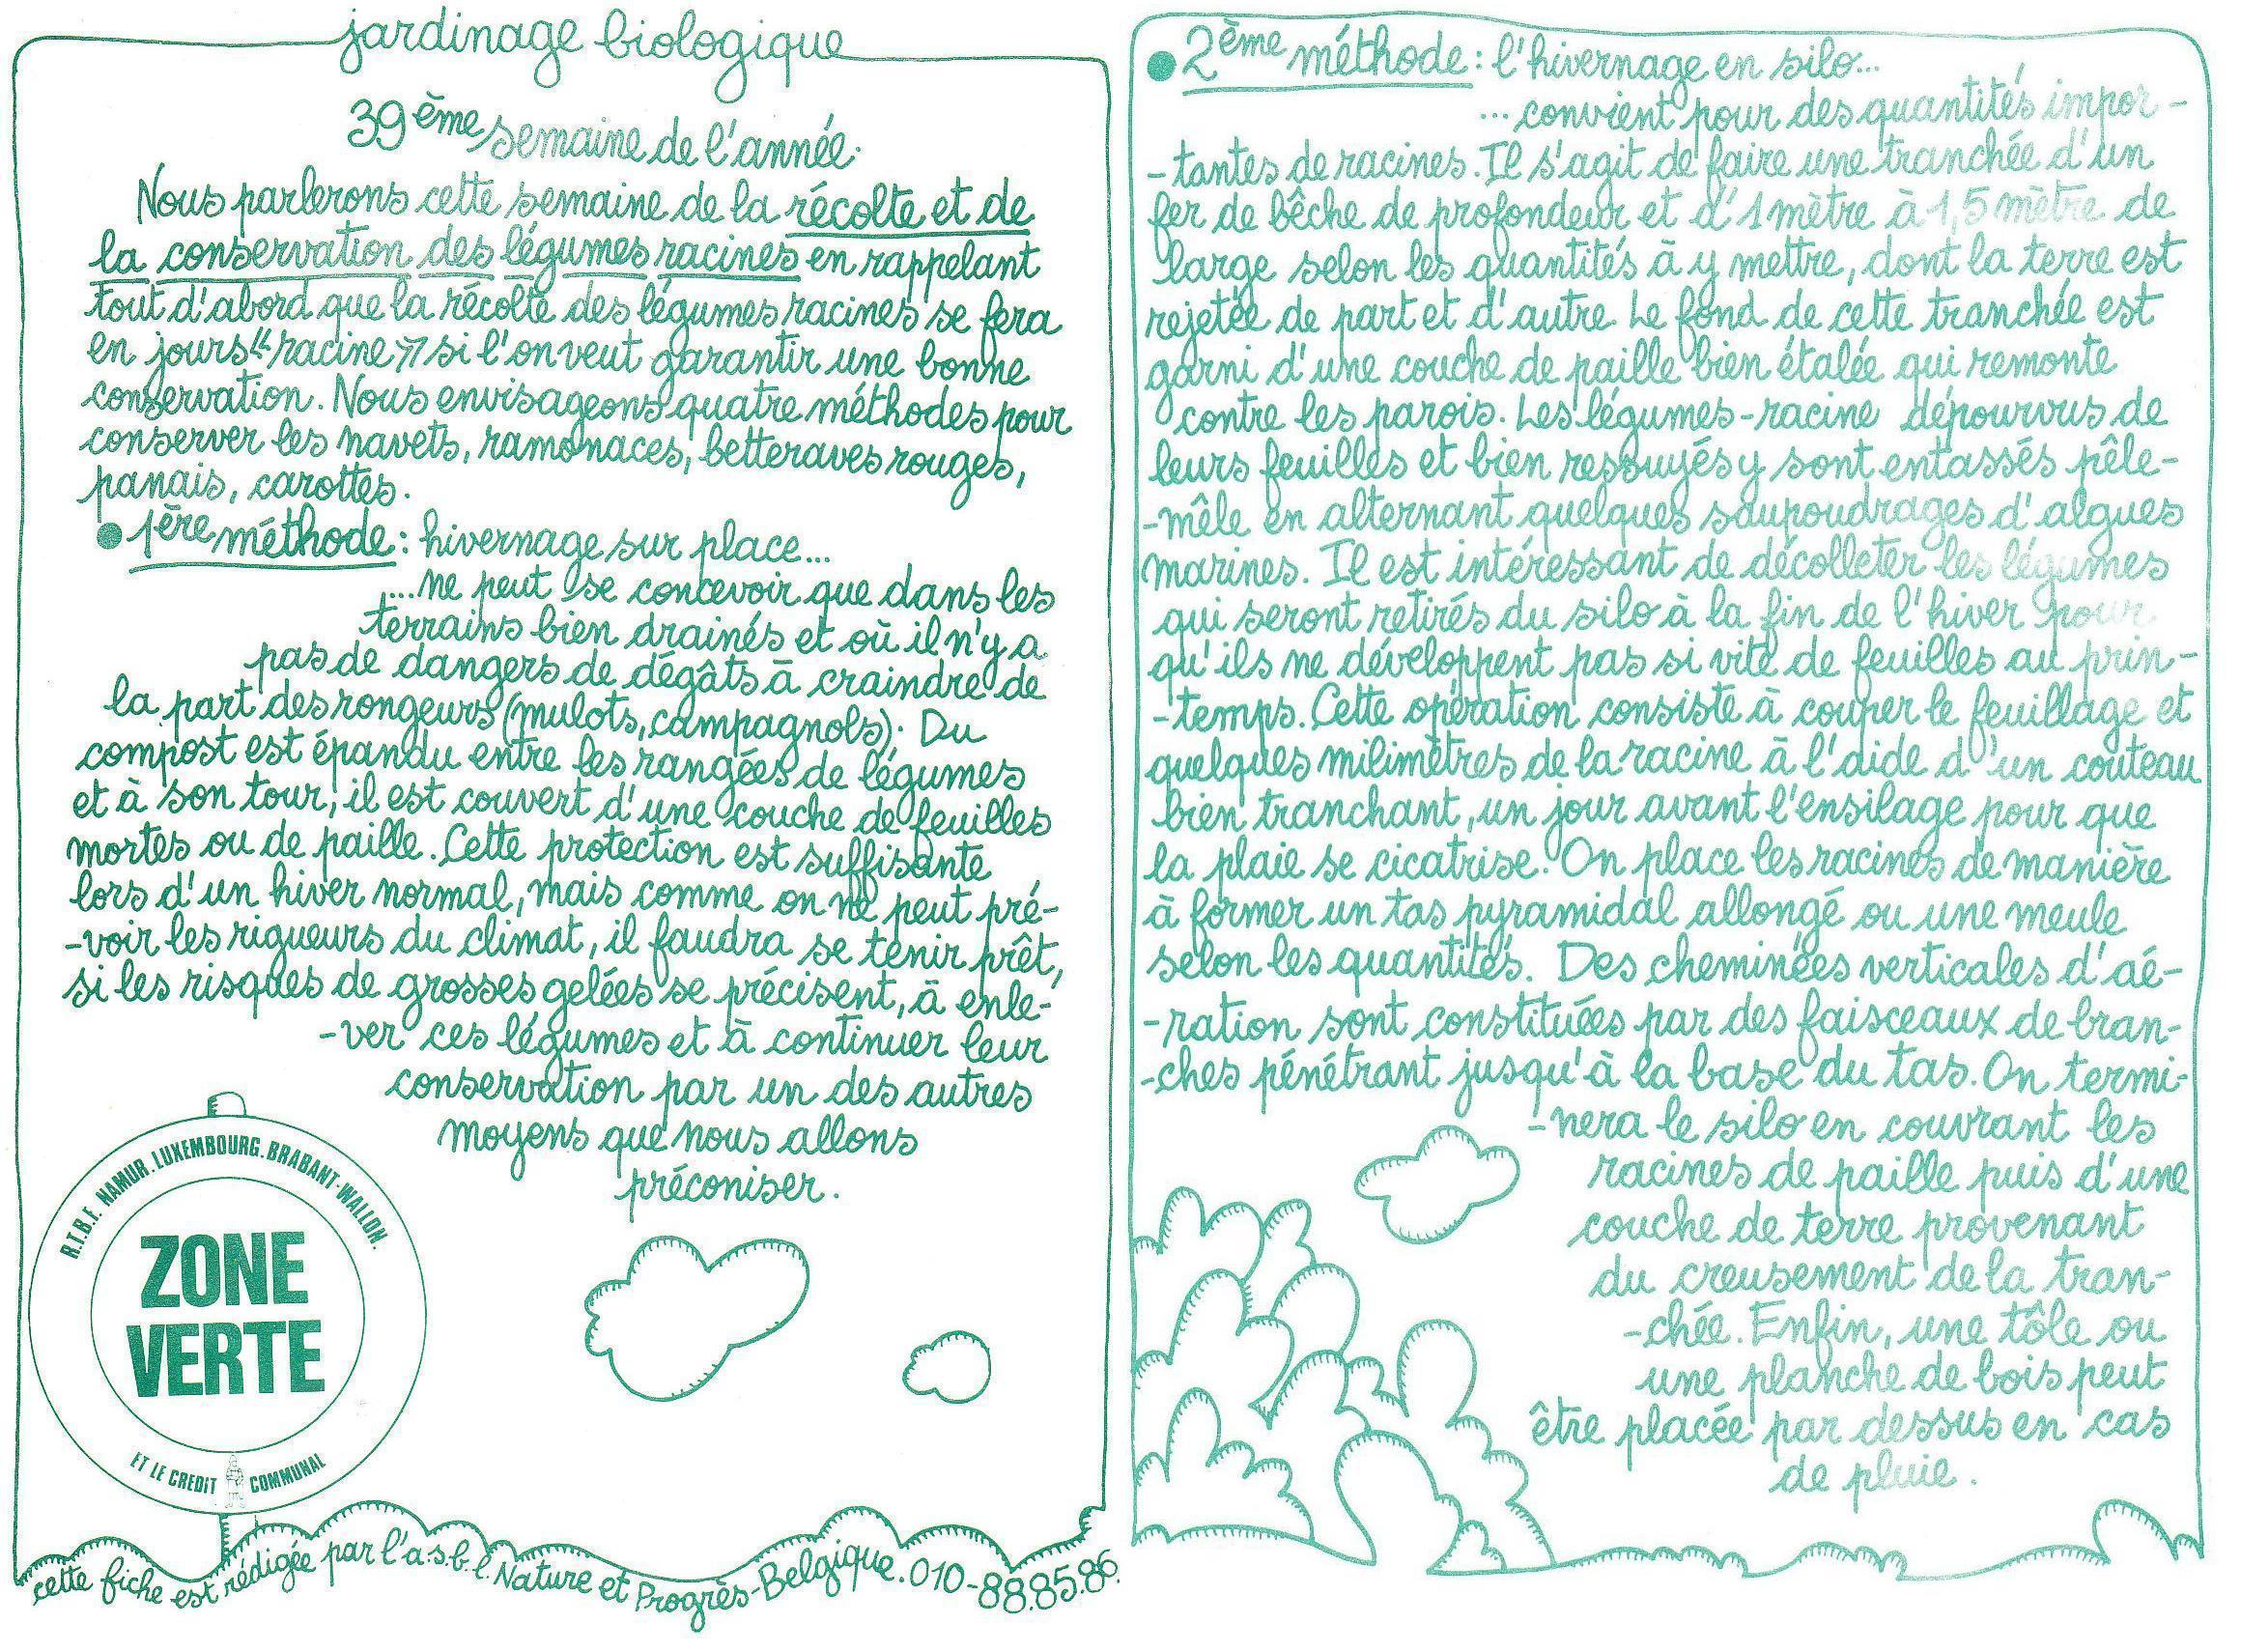 jardinage biologique
39ème semaine de l'année.
Nous parlerons cette semaine de la récolte et de
la conservation des légumes racines en rappelant
tout d'abord que la récolte des légumes racines se fera
en jours "racine" si l'on veut garantir une bonne
conservation. Nous envisageons quatre méthodes pour
conserver les navets, ramonaces, betteraves rouges,
panais, carottes.
● 1ère méthode : hivernage sur place...
...ne peut se concevoir que dans les
terrains bien drainés et où il n'y a
pas de dangers de dégâts à craindre de
la part des rongeurs (mulots, campagnols). Du
compost est épandu entre les rangées de légumes
et à son tour, il est couvert d'une couche de feuilles
mortes ou de paille. Cette protection est suffisante
lors d'un hiver normal, mais comme on ne peut pré-
-voir les rigueurs du climat, il faudra se tenir prêt,
si les risques de grosses gelées se précisent, à enle-
-ver ces légumes et à continuer leur
conservation par un des autres
moyens que nous allons
préconiser.
R.T.B.F. NAMUR. LUXEMBOURG. BRABANT-WALLON.
ZONE
VERTE
ET LE CREDIT COMMUNAL
cette fiche est rédigée par l'a.s.b.l. Nature et Progrès-Belgique. 010-88.85.86.
● 2ème méthode : l'hivernage en silo...
...convient pour des quantités impor-
-tantes de racines. Il s'agit de faire une tranchée d'un
fer de bêche de profondeur et d'1 mètre à 1,5 mètre de
large selon les quantités à y mettre, dont la terre est
rejetée de part et d'autre. Le fond de cette tranchée est
garni d'une couche de paille bien étalée qui remonte
contre les parois. Les légumes-racine dépourvus de
leurs feuilles et bien ressuyés y sont entassés pêle-
-mêle en alternant quelques saupoudrages d'algues
marines. Il est intéressant de décolleter les légumes
qui seront retirés du silo à la fin de l'hiver pour
qu'ils ne développent pas si vite de feuilles au prin-
-temps. Cette opération consiste à couper le feuillage et
quelques milimètres de la racine à l'aide d'un couteau
bien tranchant, un jour avant l'ensilage pour que
la plaie se cicatrise. On place les racines de manière
à former un tas pyramidal allongé ou une meule
selon les quantités. Des cheminées verticales d'aé-
-ration sont constituées par des faisceaux de bran-
-ches pénétrant jusqu'à la base du tas. On termi-
-nera le silo en couvrant les
racines de paille puis d'une
couche de terre provenant
du creusement de la tran-
-chée. Enfin, une tôle ou
une planche de bois peut
être placée par dessus en cas
de pluie.